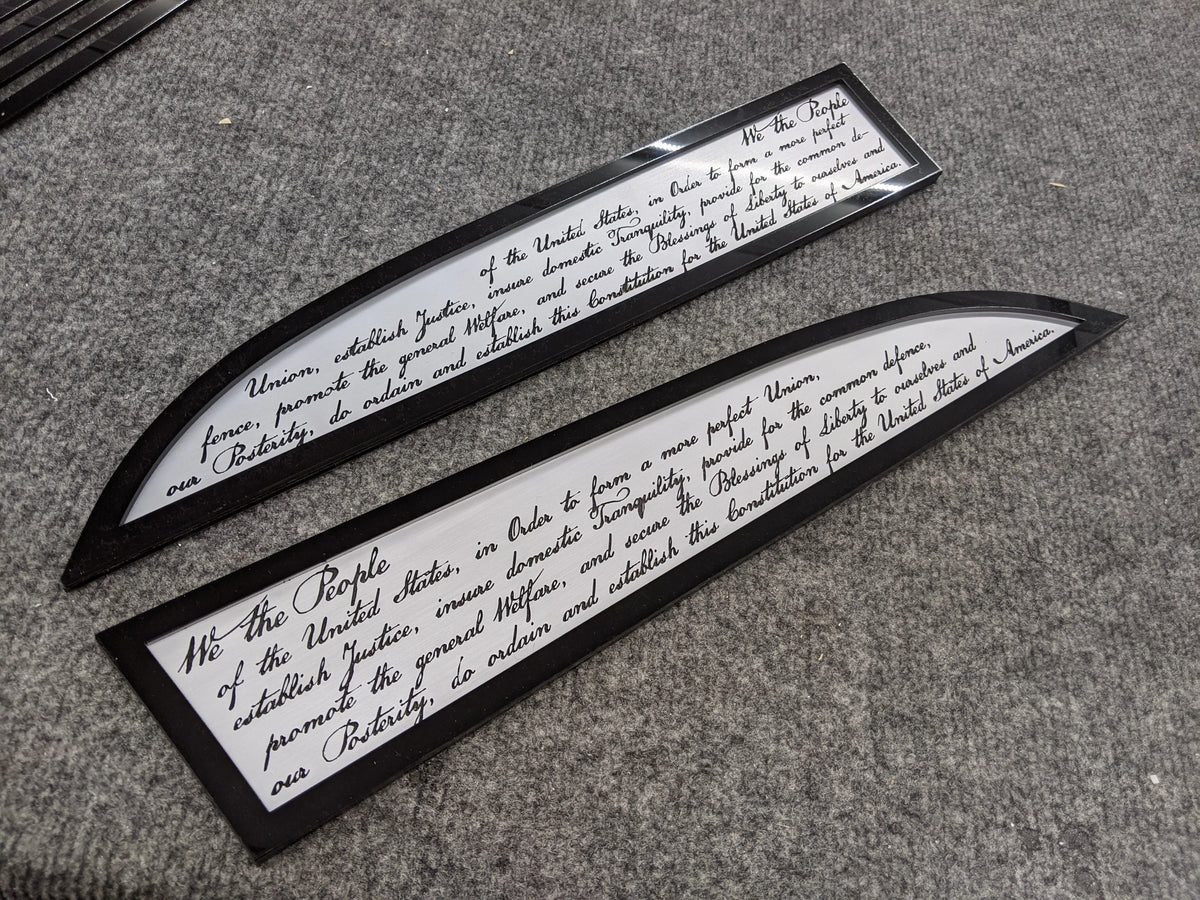 We the People
of the United States, in Order to form a more perfect
Union, establish Justice, insure domestic Tranquility, provide for the common de-
fence, promote the general Welfare, and secure the Blessings of Liberty to ourselves and
our Posterity, do ordain and establish this Constitution for the United States of America.
We the People
of the United States, in Order to form a more perfect Union,
establish Justice, insure domestic Tranquility, provide for the common defence,
promote the general Welfare, and secure the Blessings of Liberty to ourselves and
our Posterity, do ordain and establish this Constitution for the United States of America.